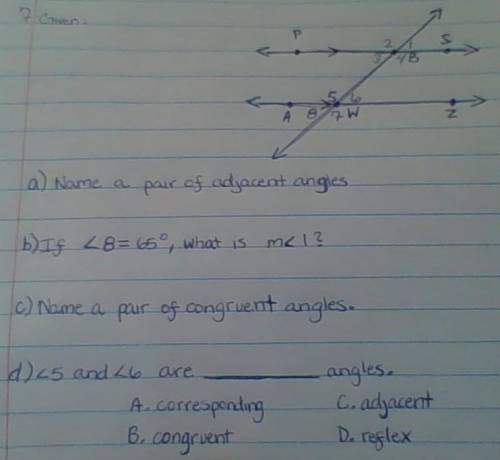 7 Given:
P 2 1 S
3 4 B
5 6
A 8 7 W Z
a) Name a pair of adjacent angles
b) If ∠8 = 65°, what is m∠1?
c) Name a pair of congruent angles.
d) ∠5 and ∠6 are ________ angles.
A. corresponding C. adjacent
B. congruent D. reflex